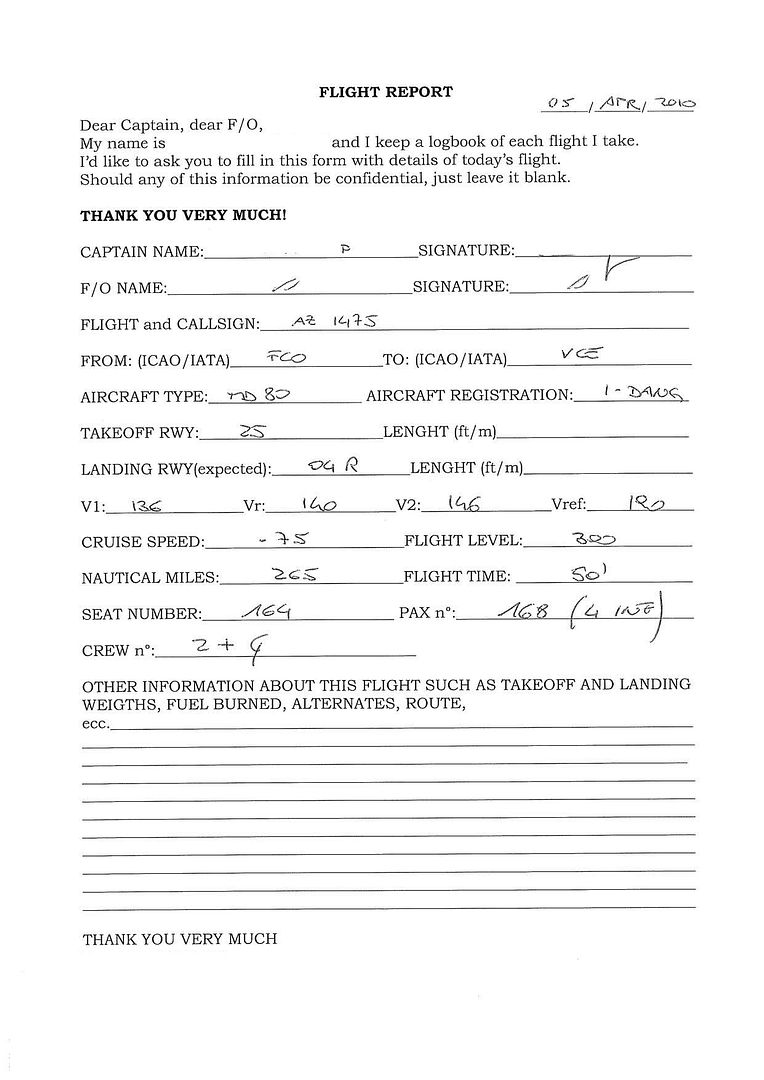 FLIGHT REPORT
05 / APR / 2010
Dear Captain, dear F/O,
My name is and I keep a logbook of each flight I take.
I'd like to ask you to fill in this form with details of today's flight.
Should any of this information be confidential, just leave it blank.
THANK YOU VERY MUCH!
CAPTAIN NAME: P SIGNATURE:
F/O NAME: SIGNATURE:
FLIGHT and CALLSIGN: AZ 1475
FROM: (ICAO/IATA) FCO TO: (ICAO/IATA) VCE
AIRCRAFT TYPE: MD 80 AIRCRAFT REGISTRATION:
TAKEOFF RWY: 25 LENGHT (ft/m)
LANDING RWY(expected): 04 R LENGHT (ft/m)
V1: 136 Vr: 140 V2: 146 Vref:
CRUISE SPEED: .75 FLIGHT LEVEL: 300
NAUTICAL MILES: 265 FLIGHT TIME: 50'
SEAT NUMBER: 164 PAX n°: 168 (4 INF)
CREW n°: 2 + 4
OTHER INFORMATION ABOUT THIS FLIGHT SUCH AS TAKEOFF AND LANDING
WEIGTHS, FUEL BURNED, ALTERNATES, ROUTE,
ecc.
THANK YOU VERY MUCH